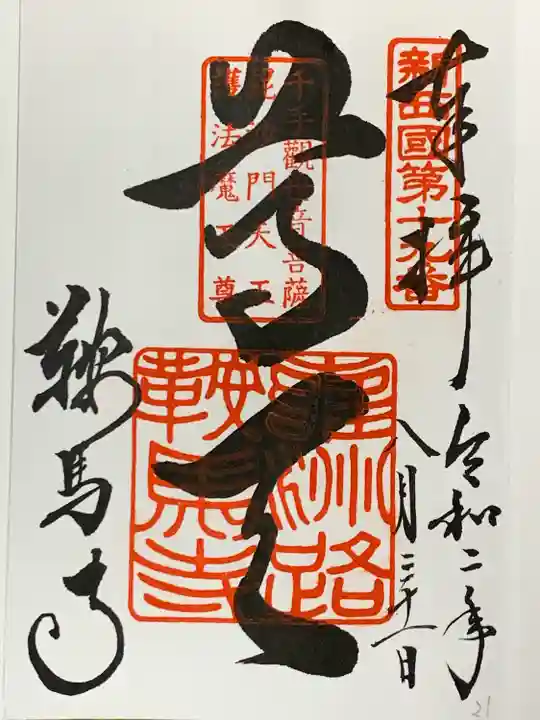 奉拝
新西國第十九番
令和二年
八月二十一日
千手觀世音菩薩
毘沙門天王
護法魔王尊
尊天
路
鞍馬寺
鞍馬寺
21